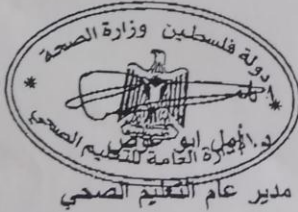 دولة فلسطين وزارة الصحة
الإدارة العامة للتعليم الصحي
د. أمل ابو عوض
مدير عام التعليم الصحي